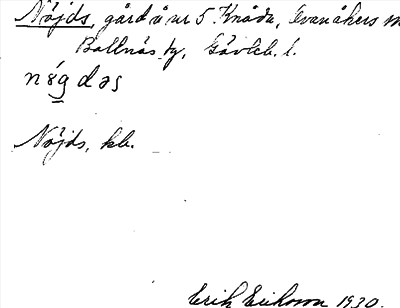 Nöjds, gård å nr 5 Knåda, Svanåkers
Bollnäs tg, Gävleb. l.
nøg dəs
Nöjds, kb.
Erik Eriksson 1930.